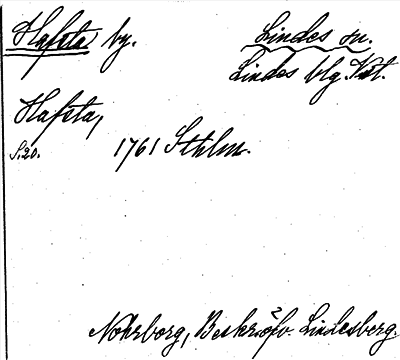 Hafsta by. Lindes sn.
Lindes blg Vstm.
Hafsta,
S.20. 1761 Sthlm.
Nohrborg, Beskrifv. Lindesberg.